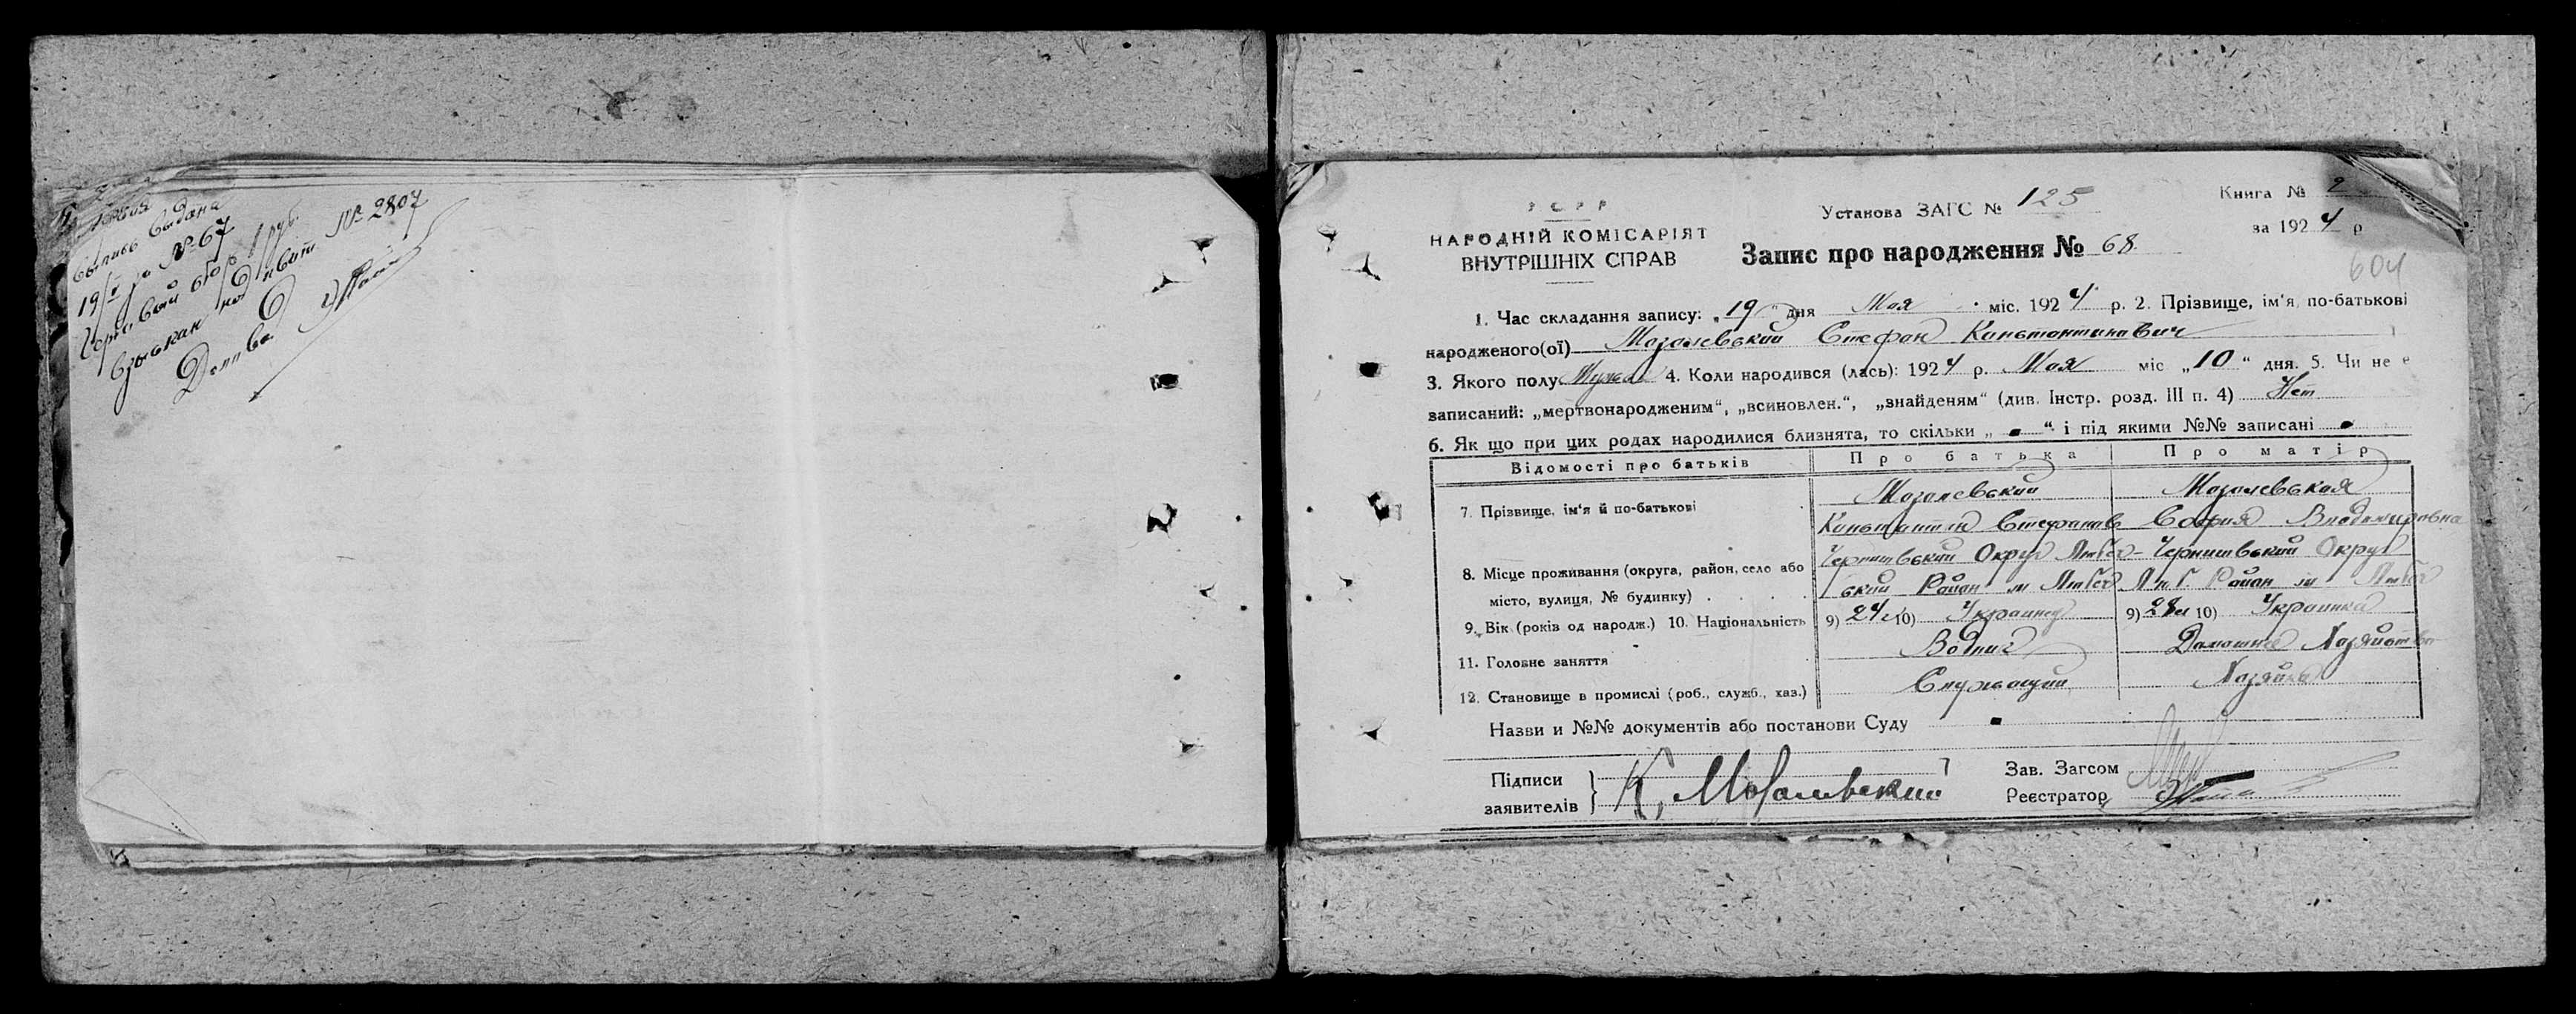 выпись выдана
19/V за № 67
Гербовый сбор 1 руб.
взыскан по квит. № 2807
У С Р Р
НАРОДНІЙ КОМІСАРІЯТ
ВНУТРІШНІХ СПРАВ
Установа ЗАГС № 125
Книга № 2
за 1924 р
Запис про народження № 68
604
1. Час складання запису: „19" дня Мая міс. 1924 р. 2. Прізвище, ім'я, по-батькові
народженого(ої) Мозалевський Стефан Константинович
3. Якого полу Мужск 4. Коли народився (лась): 1924 р. Мая міс „10" дня. 5. Чи не є
записаний: „мертвонародженим", „всиновлен.", „знайденям" (див. Інстр. розд. III п. 4) Нет
6. Як що при цих родах народилися близнята, то скільки „ - " і під якими №№ записані -
Відомості про батьків Про батька Про матір
7. Прізвище, ім'я й по-батькові
Мозалевский
Константин Стефанов
Мозалевская
София Владимировна
8. Місце проживання (округа, район, село або
місто, вулиця, № будинку)
Черниговский Округ Любеч-
ский Район м Любеч
Черниговский Округ
Люб. Район м Любеч
9. Вік (років од народж.) 10. Національність 9) 24 10) Украинец 9) 28 л 10) Украинка
11. Головне заняття Домашнее Хозяйство
12. Становище в промислі (роб., служб., хаз.) Служащий Хозяйка
Назви и №№ документів або постанови Суду -
Підписи
заявителів
К. Мозалевский
Зав. Загсом
Реєстратор